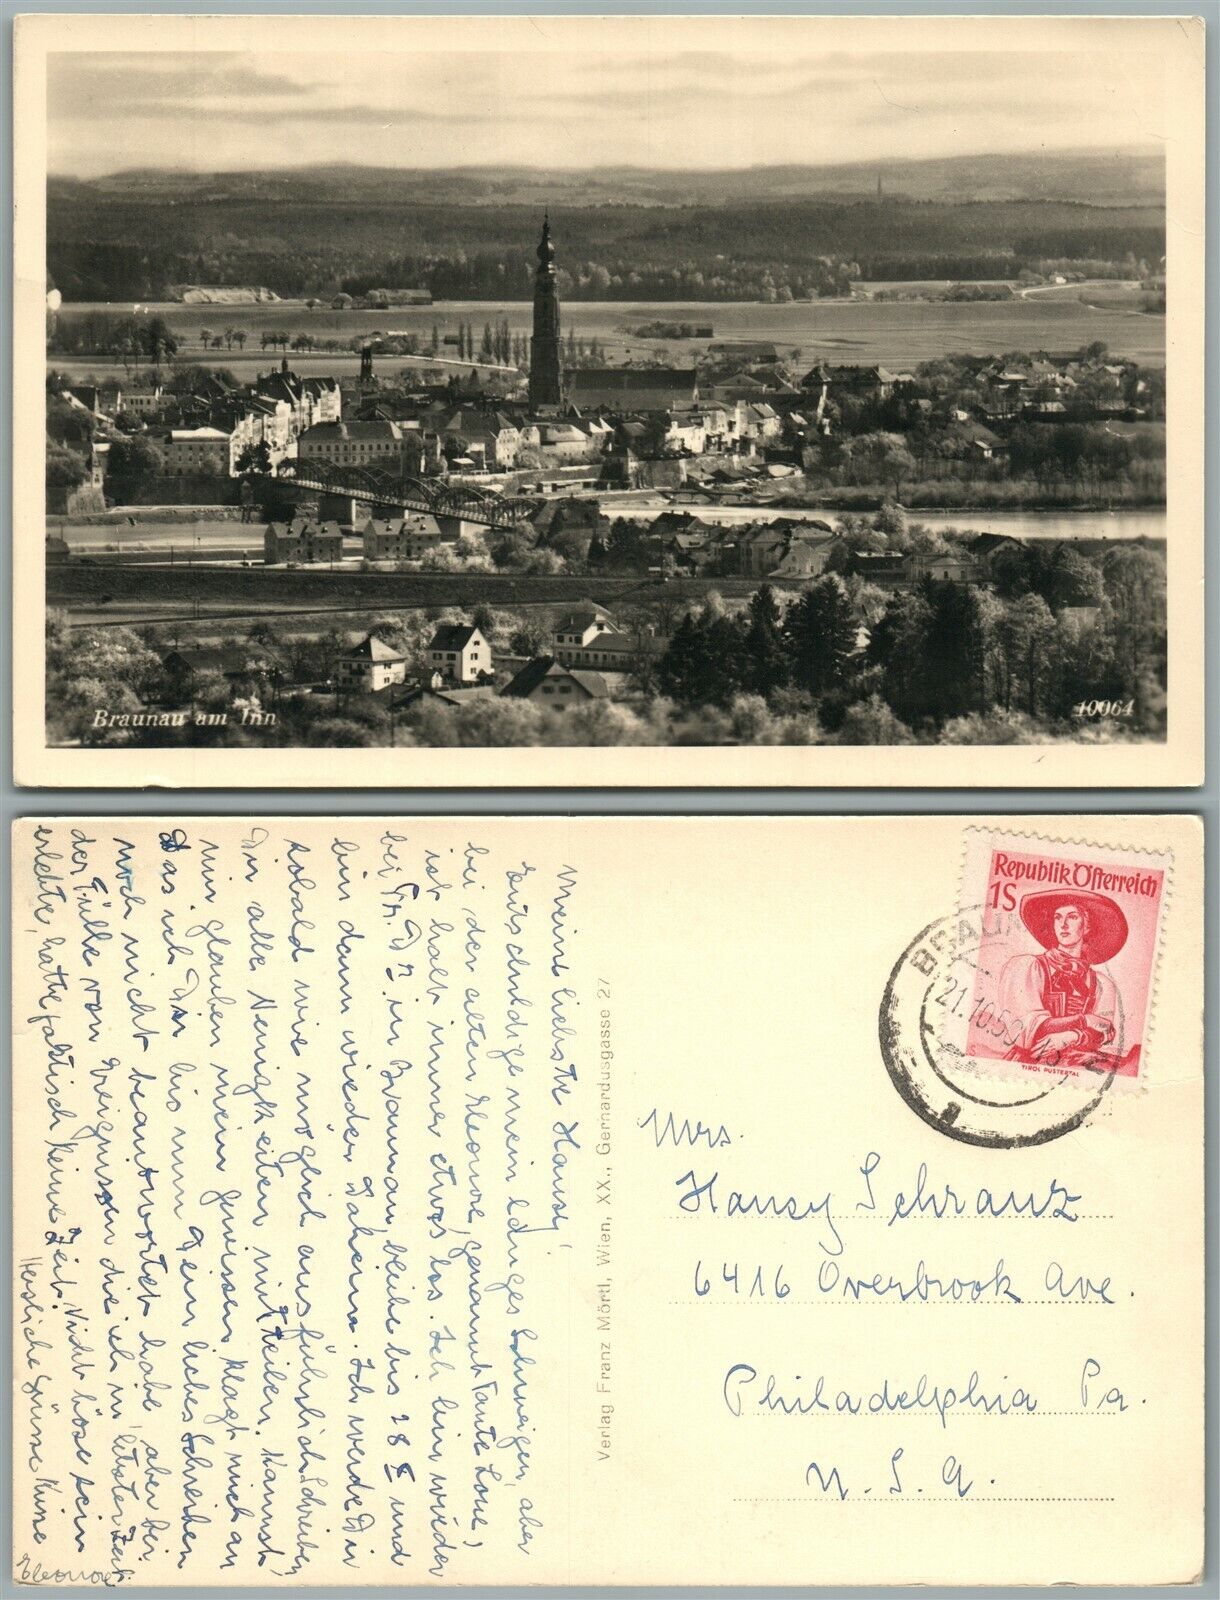 Braunau am Inn
10064
Meine liebste Hansy!
Entschuldige mein langes Schweigen, aber
bei der alten Eleonore, genannt Tante Lore,
ist halt immer etwas los. Ich bin wieder
bei Fr. Dr. in Braunau, bleibe bis 28 X und
bin dann wieder Daheim. Ich werde Dir
sobald wie möglich ausführlich Schreiben
Dir alle Neuigkeiten mitteilen. Kannst
mir glauben mein Gewissen klagt mich an
Das ich Dir bis nun Dein liebes Schreiben
noch nicht beantwortet habe, aber bei
der Fülle von Ereignissen die ich in letzter Zeit
erlebte, hatte faktisch keine Zeit. Nicht böse sein
Herzliche Grüsse Küsse
Eleonore
Verlag Franz Mörtl, Wien, XX., Gerhardusgasse 27
Republik Österreich
1S
TIROL PUSTERTAL
BRAUNAU INN
21.10.50
Mrs.
Hansy Schranz
6416 Overbrook Ave.
Philadelphia Pa.
U.S.A.